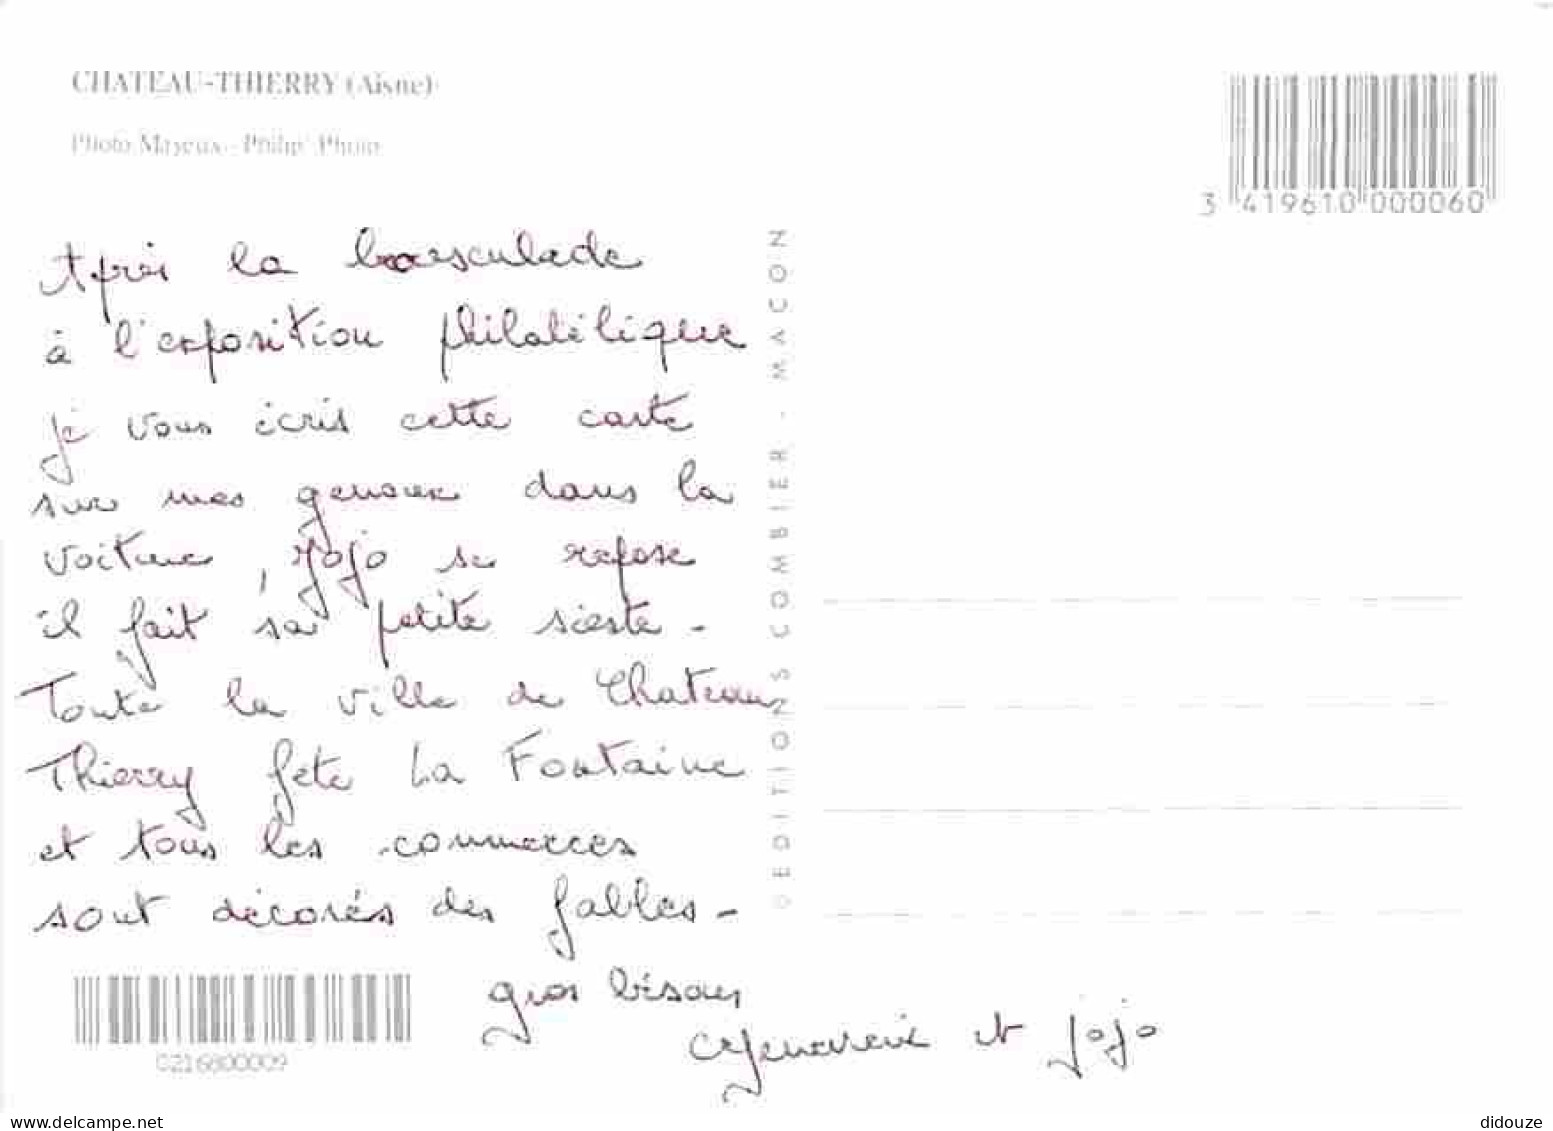 CHATEAU-THIERRY (Aisne)
Photo Mayeux - Philip' Photo
3 419610 000060
Après la bousculade
à l'exposition philatélique
je vous écris cette carte
sur mes genoux dans la
voiture, Jojo se repose
il fait sa petite sieste -
Toute la ville de Chateau
Thierry fête La Fontaine
et tous les commerces
sont décorés des fables -
gros bisous
Geneviève et Jojo
EDITIONS COMBIER - MACON
0216800009
delcampe.net
didouze